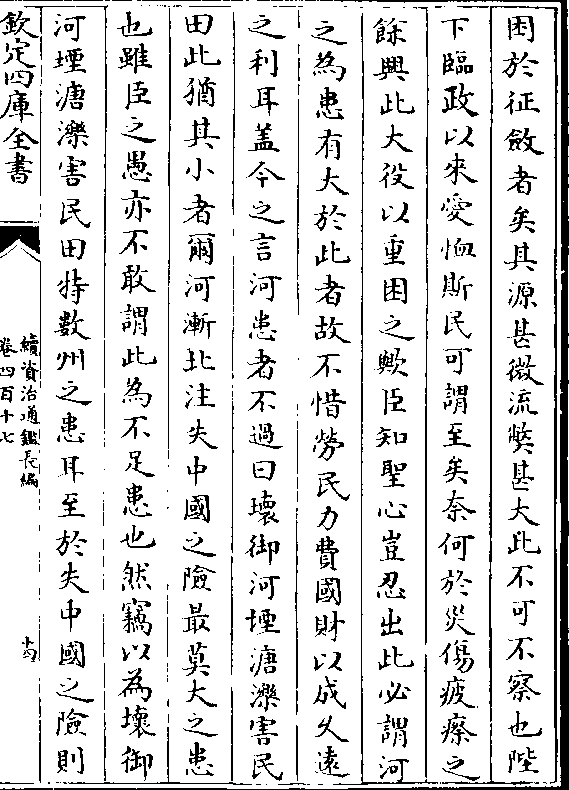 困於征斂者矣其源甚微流弊甚大此不可不察也陛
下臨政以來愛恤斯民可謂至矣奈何於災傷疲瘵之
餘興此大役以重困之歟臣知聖心豈忍出此必謂河
之為患有大於此者故不惜勞民力費國財以成久遠
之利耳盖今之言河患者不過曰壊御河堙溏濼害民
田此猶其小者爾河漸北注失中國之險最莫大之患
也雖臣之愚亦不敢謂此為不足患也然竊以為壊御
河堙溏濼害民田特數州之患耳至於失中國之險則
欽定四庫全書
續資治通鑑長編
卷四百十七
十四